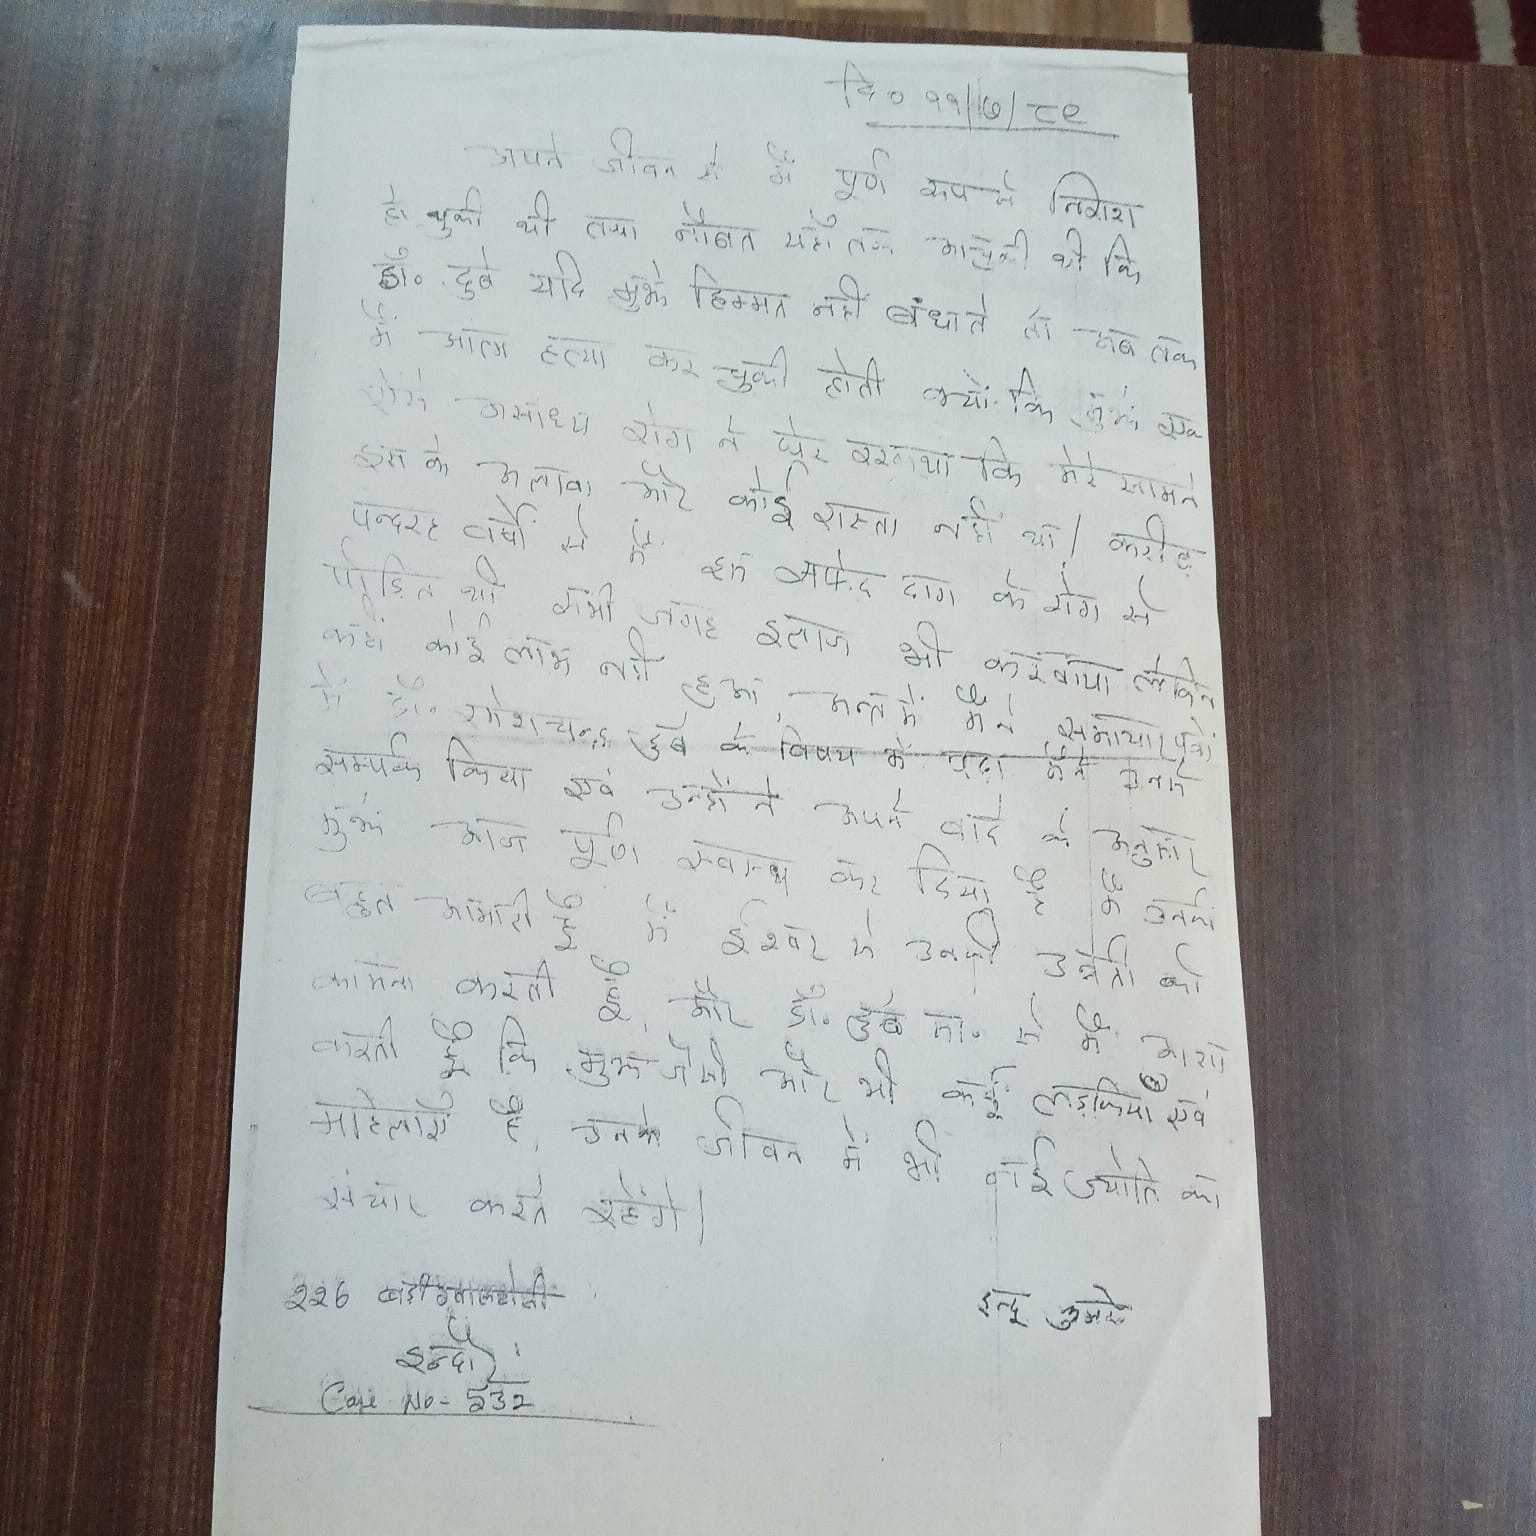 दि० ११/७/८९
अपने जीवन से मैं पूर्ण रूप से निराश
हो चुकी थी तथा नौबत यहाँ तक आ चुकी थी कि
डॉ. दुबे यदि मुझे हिम्मत नहीं बंधाते तो अब तक
मैं आत्म हत्या कर चुकी होती क्यों कि मुझे एक
ऐसे असाध्य रोग ने घेर रखा था कि मेरे सामने
इस के अलावा और कोई रास्ता नहीं था। करीब
पन्द्रह वर्षों से मैं इस सफेद दाग के रोग से
पीड़ित थी सभी जगह इलाज भी करवाया लेकिन
कहीं कोई लाभ नहीं हुआ, अन्त में मैंने समाचार पत्रों
में डॉ. रमेशचन्द्र दुबे के विषय में पढ़ा मैंने उनसे
सम्पर्क किया एवं उन्होंने अपने वादे के अनुसार
मुझे आज पूर्ण स्वास्थ कर दिया है मैं उनकी
बहुत आभारी हूँ मैं ईश्वर से उनकी उन्नति की
कामना करती हूँ, और डॉ. दुबे सा. से मैं आशा
करती हूँ कि मुझ जैसी और भी कई लड़कियाँ एवं
महिलाएँ हैं, उनके जीवन में भी नई ज्योति का
संचार करते रहेंगे।
२२६
इन्दु
इन्दौर
Case No - 532